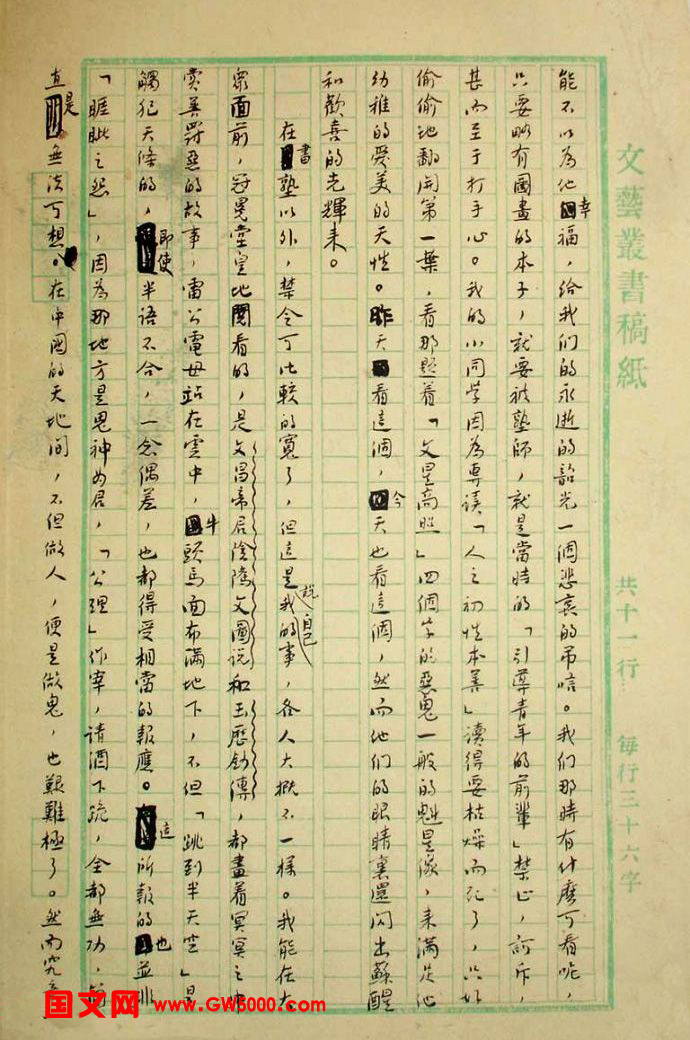 文藝叢書稿紙 共十一行 每行三十六字
能不以為他幸福，給我们的永逝的韶光一個悲哀的吊唁。我们那時有什麽可看呢，
只要略有圖畫的本子，就要被塾師，就是當時的「引導青年的前輩」禁止，訶斥，
甚而至于打手心。我的小同学因為專读「人之初性本善」讀得要枯燥而死了，只好
偷偷地翻開第一葉，看那題着「文星高照」四個字的惡鬼一般的魁星像，来满足他
幼稚的爱美的天性。昨天看這個，今天也看這個，然而他们的眼睛裏還闪出蘇醒
和歡喜的光輝来。
在書塾以外，禁令可比較的寬了，但這是說我自己的事，各人大概不一樣。我能在大
衆面前，冠冕堂皇地閱看的，是文昌帝君陰隲文圖说和玉歷鈔傳，都畫着冥冥之中
賞善罸惡的故事，雷公電母站在雲中，牛頭馬面布满地下，不但「跳到半天空」是
觸犯天條的，即使半语不合，一念偶差，也都得受相當的報應。這所報的也並非
「睚眦之怨」，因為那地方是鬼神為君，「公理」作宰，請酒下跪，全都無功，簡
直是無法可想。在中國的天地间，不但做人，便是做鬼，也艱難極了。然而究竟
国文网 www.GW5000.com